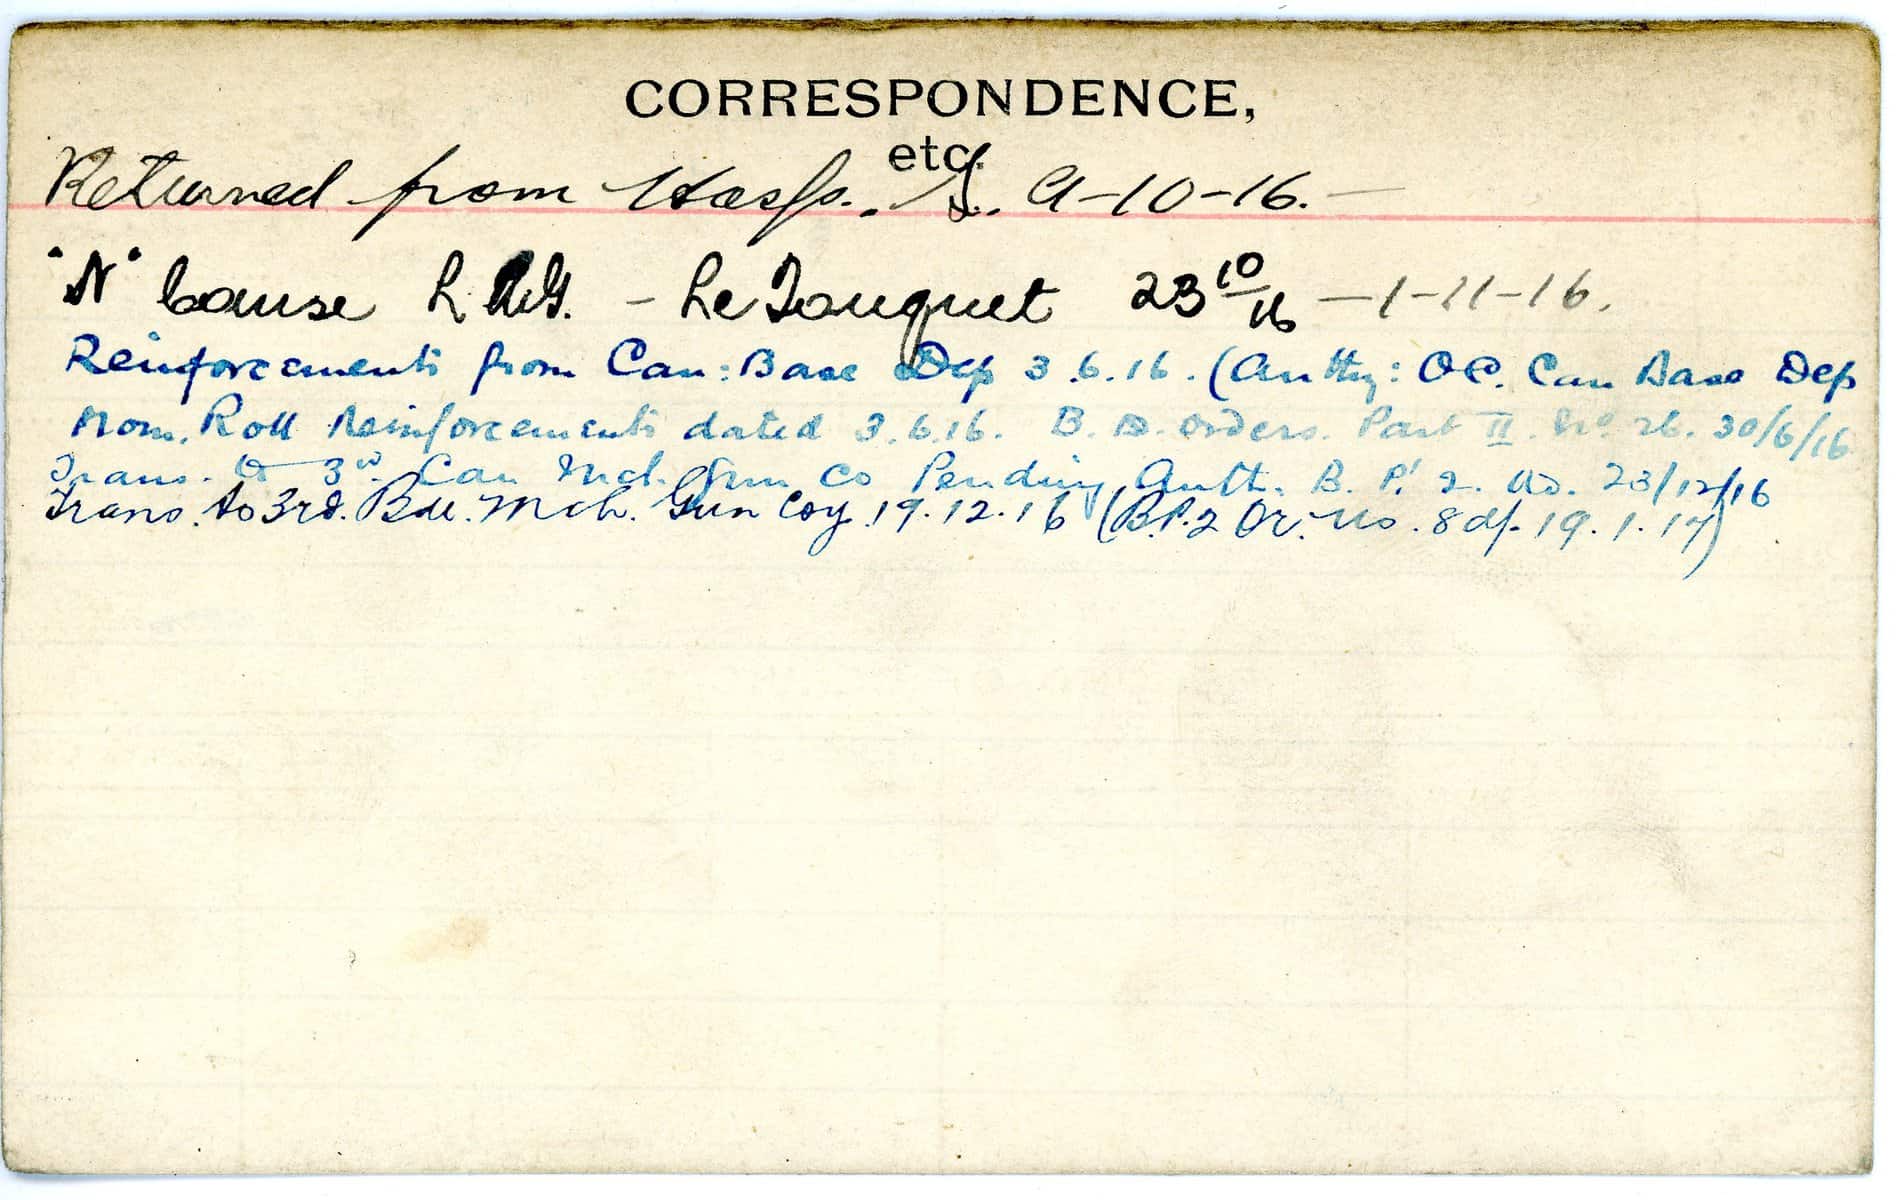 CORRESPONDENCE,
etc.
Returned from Hosp. 9-10-16. —
"N" Course L.M.G. - Le Touquet 23 10/16 — 1-11-16.
Reinforcements from Can: Base Dep 3.6.16. (Authy: OC. Can Base Dep
Nom. Roll Reinforcements dated 3.6.16. B. D. Orders. Part II. No. 26. 30/6/16
Trans. to 3rd Can Mch. Gun Co Pending Auth. B. P. 2. No. 23/12/16
Trans. to 3rd. Bde. Mch. Gun Coy. 19.12.16 (B.P.2 Or. No. 8 d/. 19.1.17)